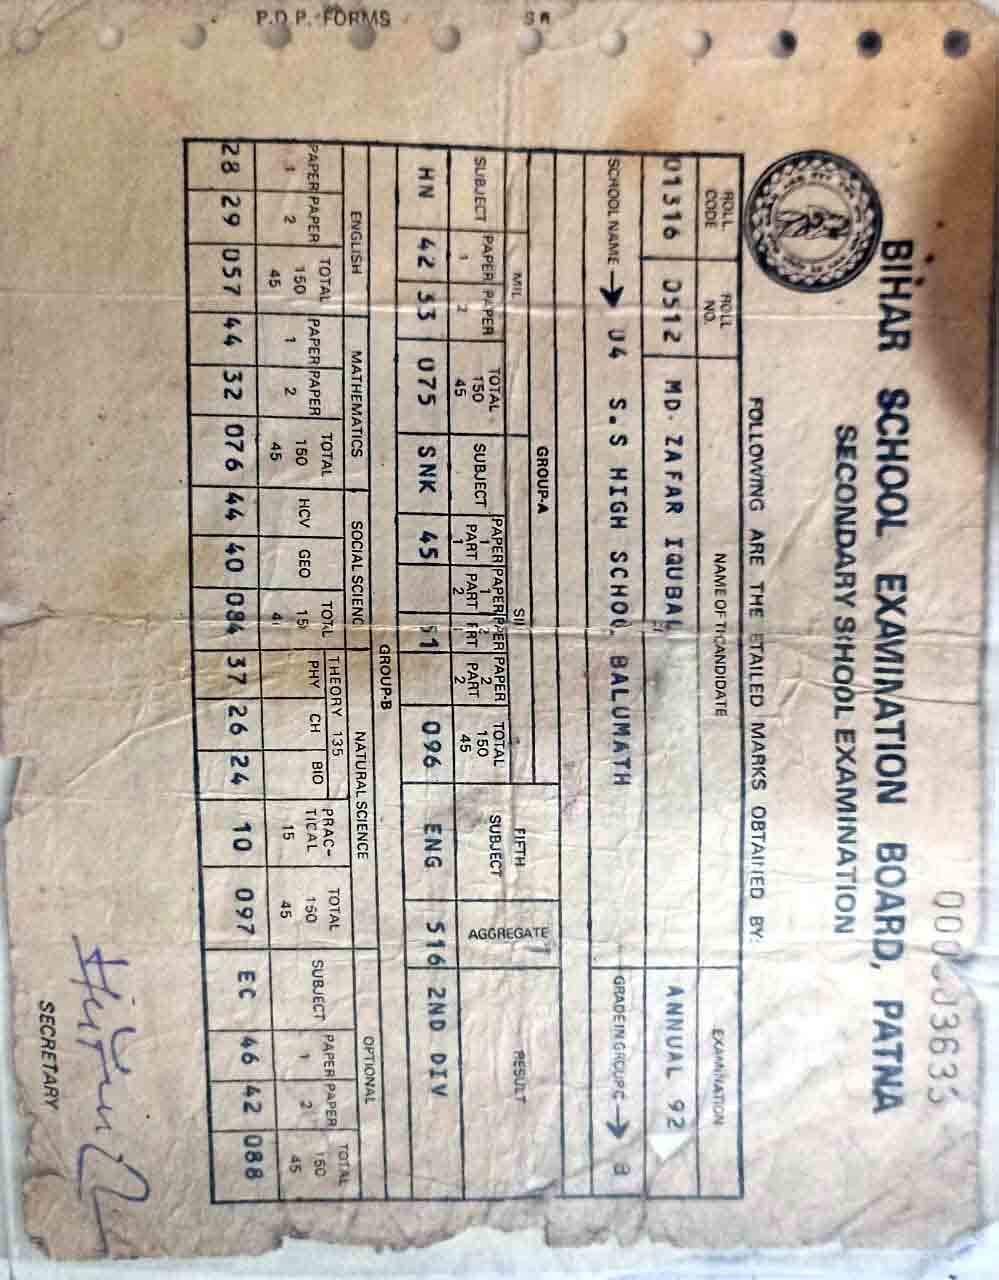 P.D.P. FORMS
BIHAR SCHOOL EXAMINATION BOARD, PATNA
SECONDARY SCHOOL EXAMINATION
FOLLOWING ARE THE ETAILED MARKS OBTAINED BY:
ROLL CODE ROLL NO. NAME OF T CANDIDATE EXAMINATION
01316 0512 MD. ZAFAR IQUBAL ANNUAL 92
SCHOOL NAME → 04 S.S HIGH SCHOOL BALUMATH GRADE IN GROUP C → B
GROUP-A
MIL SII FIFTH SUBJECT AGGREGATE RESULT
SUBJECT PAPER 1 PAPER 2 TOTAL 150 45 SUBJECT PAPER 1 PART 1 PAPER 1 PART 2 PAPER 2 PART PAPER 2 PART 2 TOTAL 150 45
HN 42 33 075 SNK 45 51 096 ENG 516 2ND DIV
GROUP-B
ENGLISH MATHEMATICS SOCIAL SCIENC NATURAL SCIENCE OPTIONAL
PAPER 1 PAPER 2 TOTAL 150 45 PAPER 1 PAPER 2 TOTAL 150 45 HCV GEO TOTAL 15 4 THEORY 135 PHY CH BIO PRAC-TICAL 15 TOTAL 150 45 SUBJECT PAPER 1 PAPER 2 TOTAL 150 45
28 29 057 44 32 076 44 40 084 37 26 24 10 097 EC 46 42 088
SECRETARY